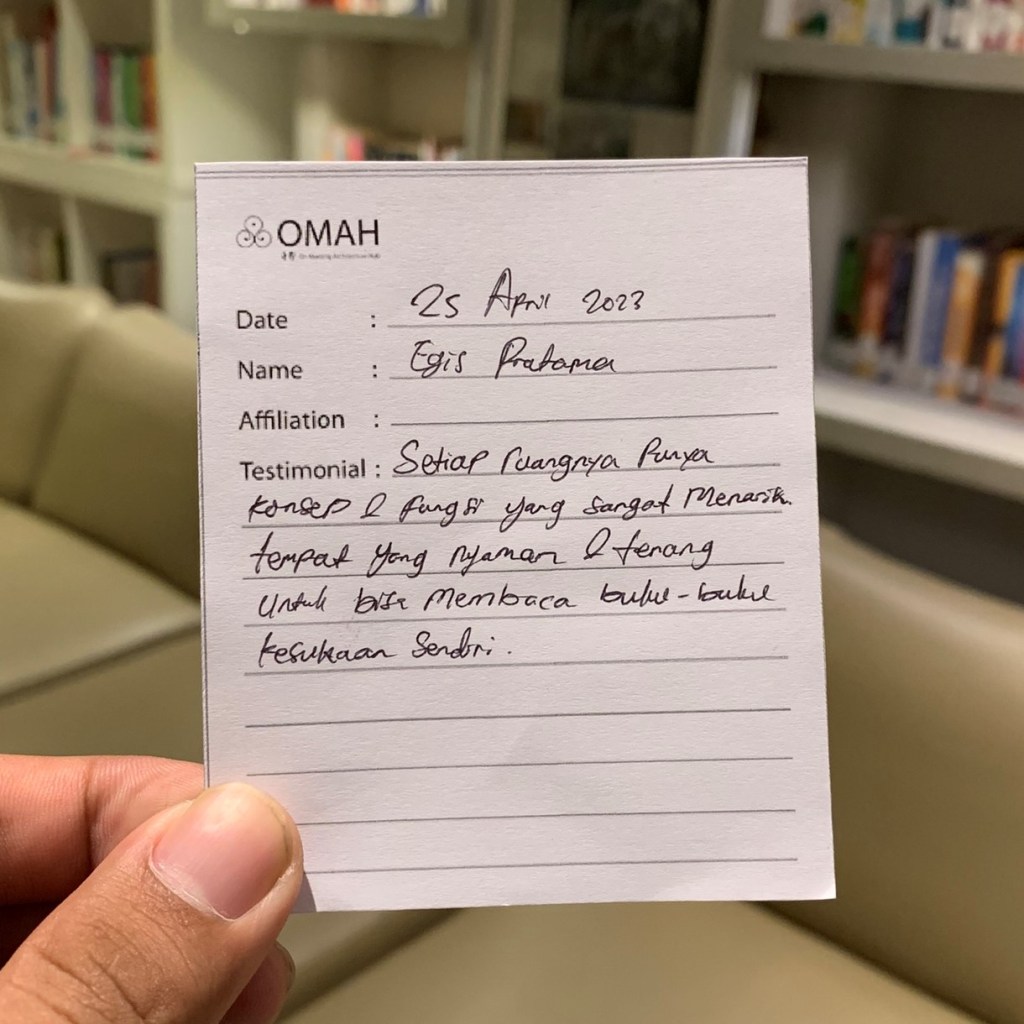 OMAH
Date : 25 April 2023
Name : Egis Pratama
Affiliation :
Testimonial : Setiap ruangnya punya
konsep & fungsi yang sangat menarik.
tempat yang nyaman & tenang
untuk bisa membaca buku-buku
kesukaan sendiri.